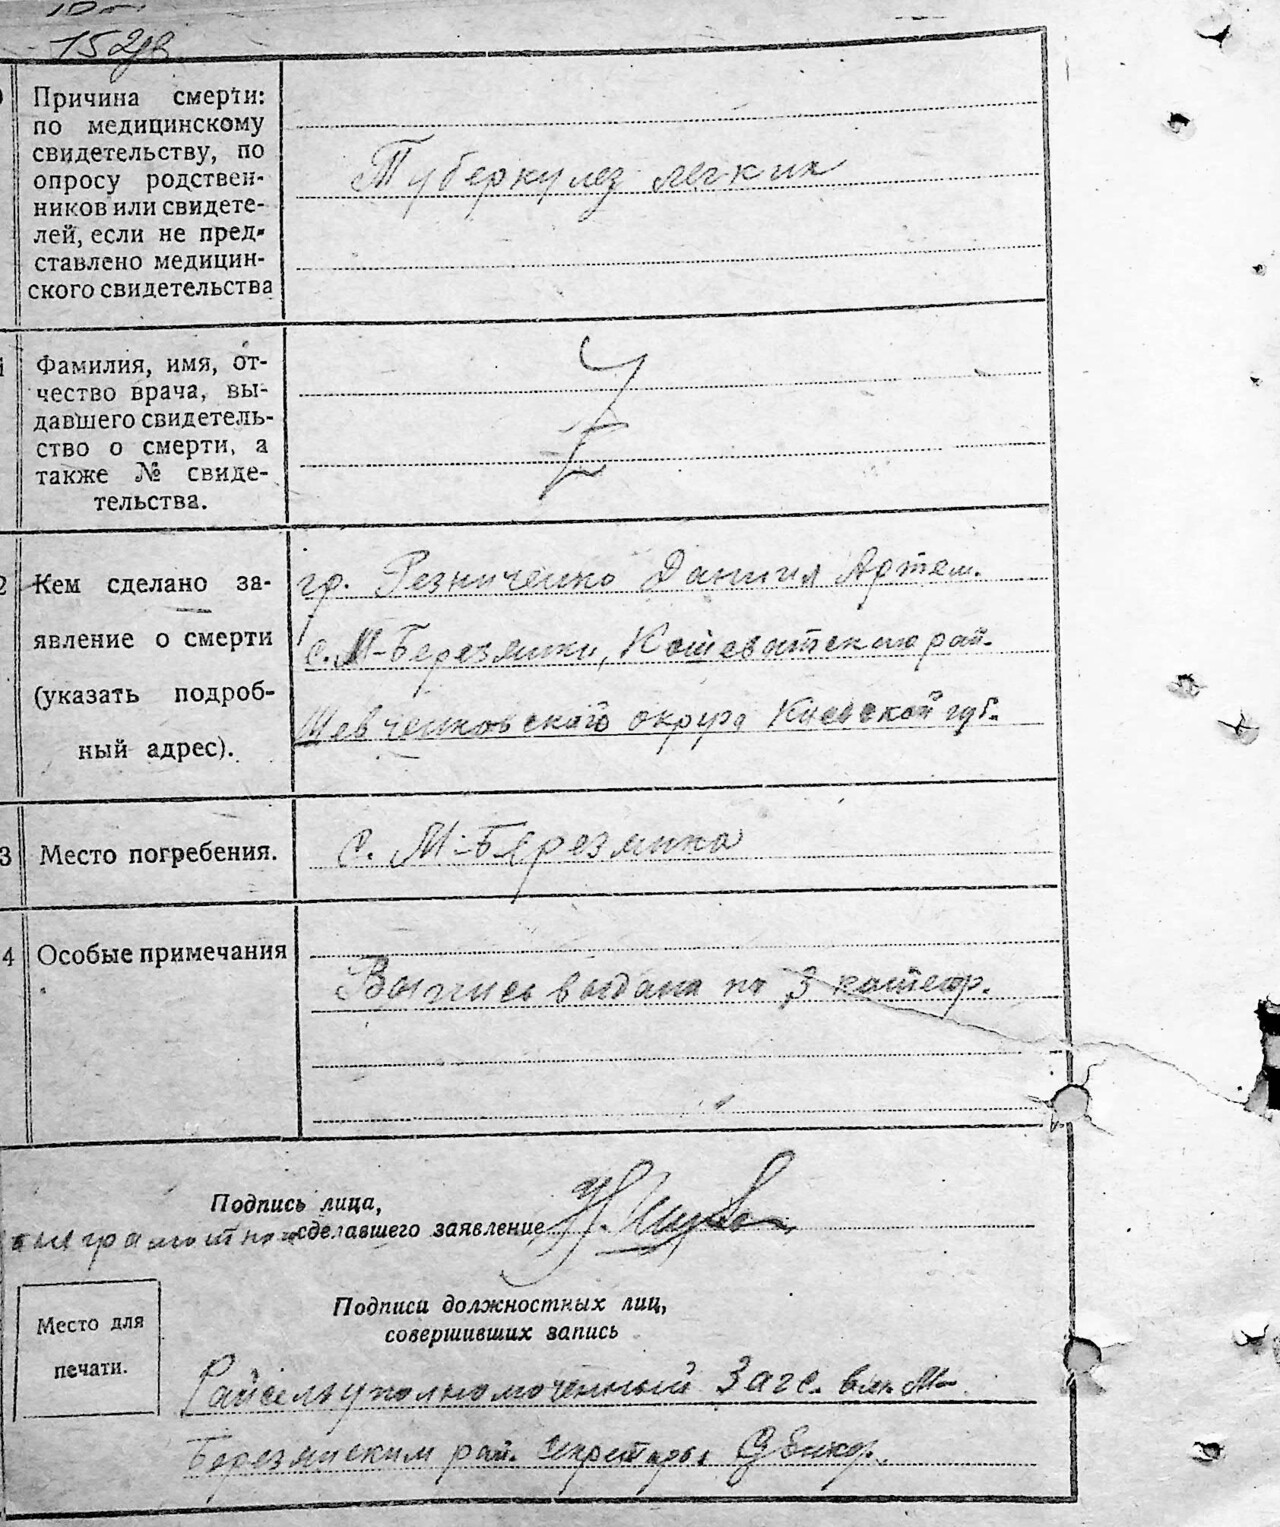 152
Причина смерти:
по медицинскому
свидетельству, по
опросу родствен-
ников или свидете-
лей, если не пред-
ставлено медицин-
ского свидетельства
Туберкулез легких
Фамилия, имя, от-
чество врача, вы-
давшего свидетель-
ство о смерти, а
также № свиде-
тельства.
2
Кем сделано за-
явление о смерти
(указать подроб-
ный адрес).
гр. Резниченко Даниил Артем.
с. М-Березянки, Кошеватского рай.
Шевченковского округа Киевской губ.
3
Место погребения.
с. М-Березянка
4
Особые примечания
Выпись выдана по 3 категор.
Подпись лица,
неграмотного сделавшего заявление
Место для
печати.
Подписи должностных лиц,
совершивших запись
Райсельуполномоченный Загс. М-
Березянским рай. секретарь